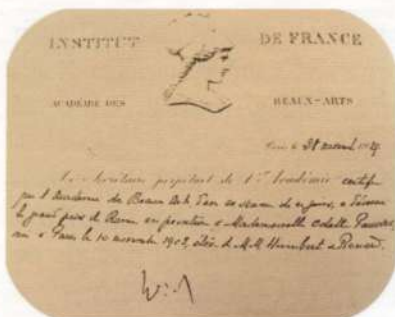 INSTITUT DE FRANCE
ACADÉMIE DES BEAUX-ARTS
Paris le
Le Secrétaire perpétuel de l'Académie certifie
que l'Académie des Beaux Arts dans sa séance de ce jour, a décerné
le grand prix de Rome en gravure à Mademoiselle Odette
née à Paris le 10 novembre 1902, élève de M.M. Humbert & Renard.